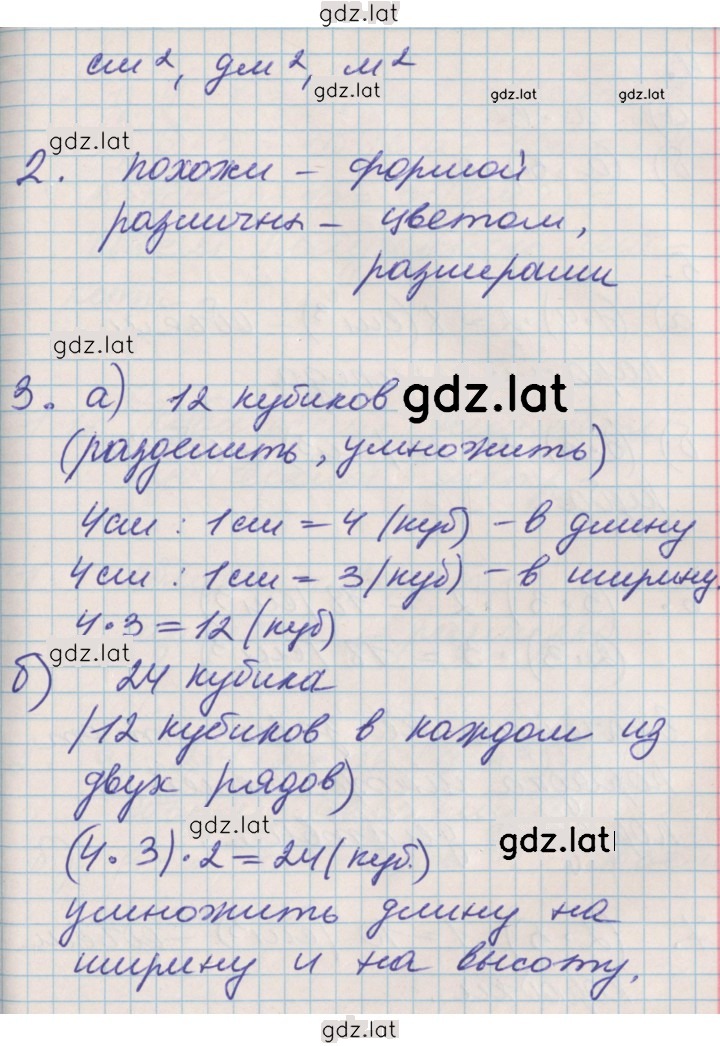 gdz.lat
см², дм², м²
gdz.lat gdz.lat gdz.lat
gdz.lat
2. похожи – формой
различны – цветом,
размерами
gdz.lat
3. а) 12 кубиков gdz.lat
(разделить, умножить)
4см : 1см = 4 (куб) – в длину
4см : 1см = 3 (куб) – в ширину.
4·3 = 12 (куб)
gdz.lat
б) 24 кубика
(12 кубиков в каждом из
двух рядов)
gdz.lat gdz.lat
(4·3)·2=24(куб.)
умножить длину на
ширину и на высоту.
gdz.lat